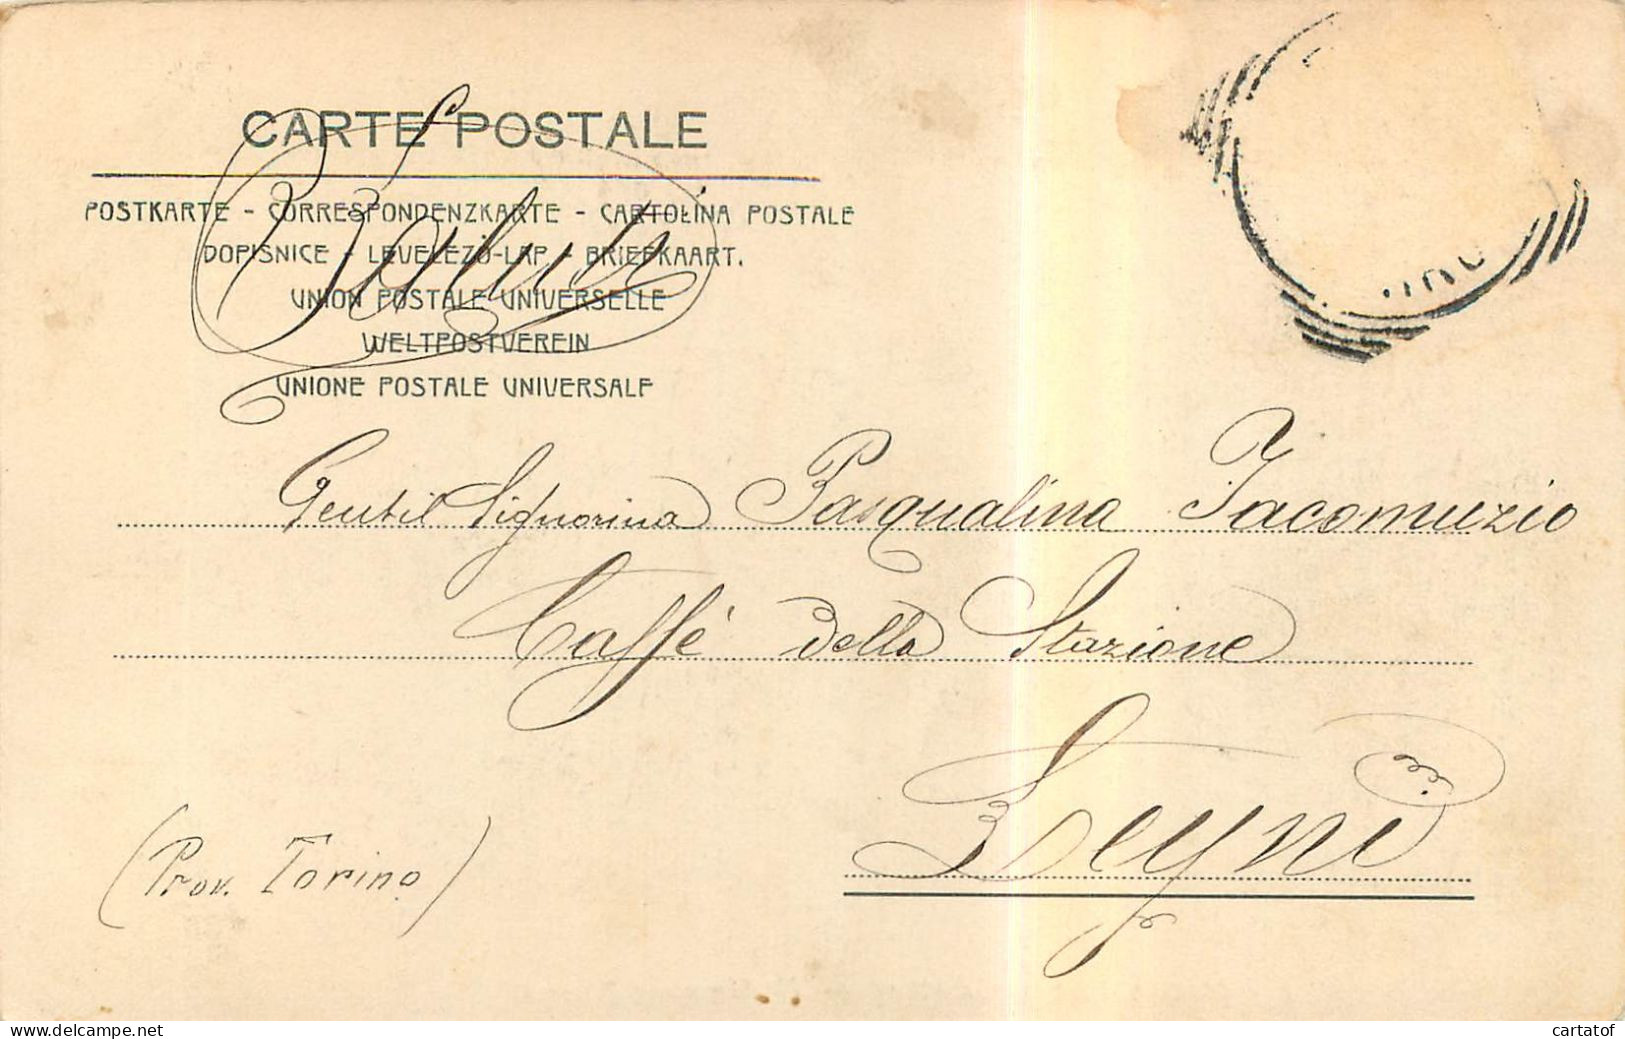 CARTE POSTALE
POSTKARTE - CORRESPONDENZKARTE - CARTOLINA POSTALE
DOPISNICE - LEVELEZŐ-LAP - BRIEFKAART.
UNION POSTALE UNIVERSELLE
WELTPOSTVEREIN
UNIONE POSTALE UNIVERSALE
Saluti
Gentil Signorina Pasqualina Iacomuzio
Caffè della Stazione
Leynì
(Prov. Torino)
delcampe.net
cartatof